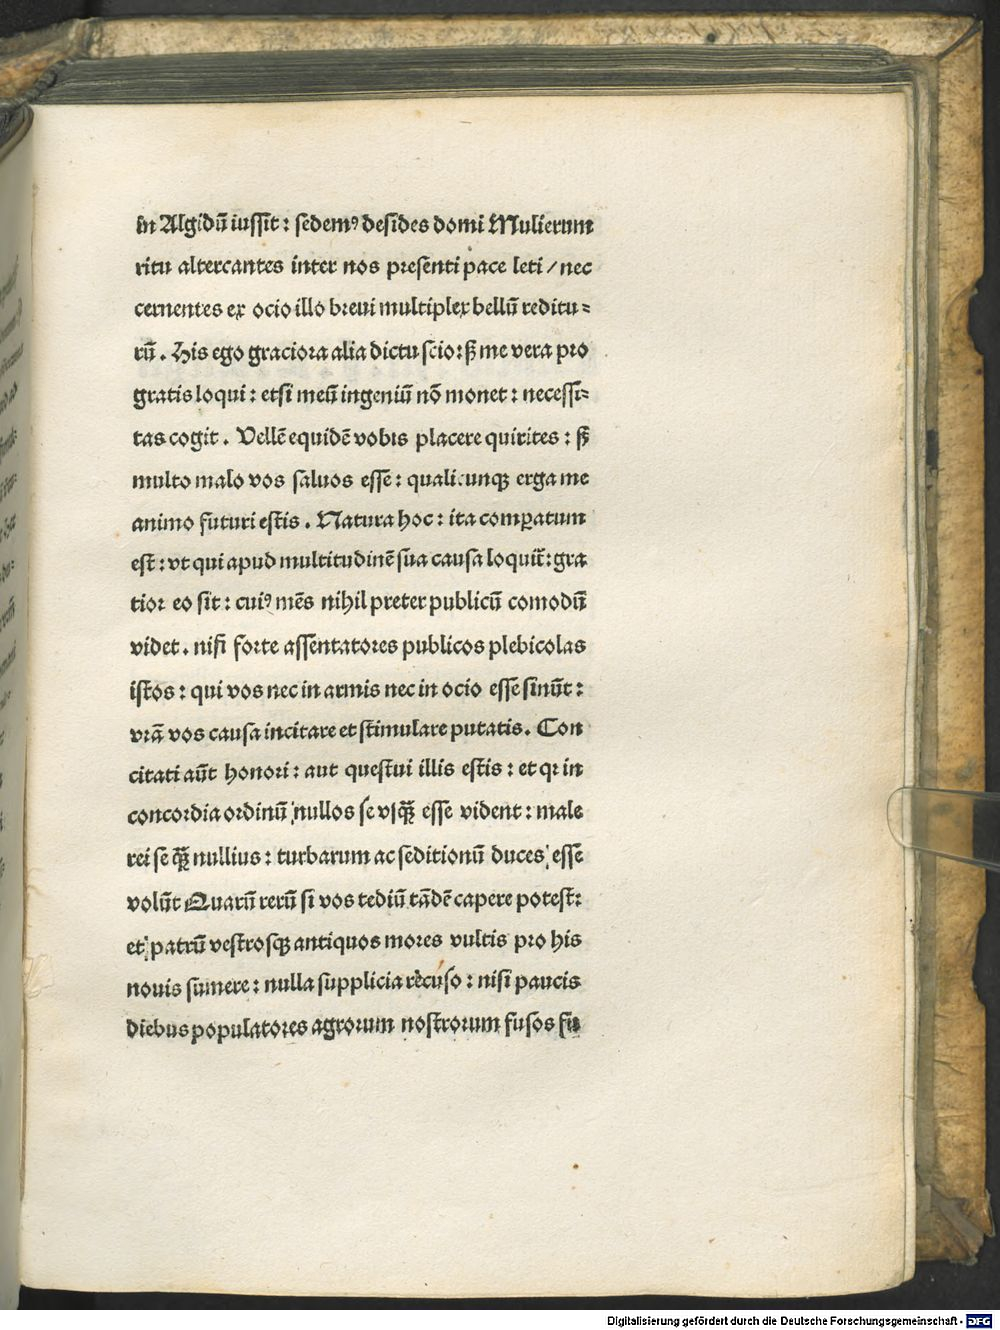 in Algidū iussit : sedemꝰ desides domi Mulierum
ritu altercantes inter nos presenti pace leti / nec
cernentes ex ocio illo breui multiplex bellū reditu⸗
rū . His ego graciora alia dictu scio : sꝫ me vera pro
gratis loqui : etsi meū ingeniū nō monet : necessi⸗
tas cogit . Vellē equidē vobis placere quirites : sꝫ
multo malo vos saluos esse : qualicunqꝫ erga me
animo futuri estis . Natura hoc : ita comꝑatum
est : vt qui apud multitudinē sua causa loquit᷑ : gra
tior eo sit : cuiꝰ mēs nihil preter publicū comodū
videt . nisi forte assentatores publicos plebicolas
istos : qui vos nec in armis nec in ocio esse sinūt :
vrā vos causa incitare et stimulare putatis . Con
citati aūt honori : aut questui illis estis : et qꝛ in
concordia ordinū nullos se vsqꝫ̄ esse vident : male
rei se qꝫ̄ nullius : turbarum ac seditionū duces esse
volūt Quarū rerū si vos tediū tādē capere potest :
et patrū vestrosqꝫ antiquos mores vultis pro his
nouis sumere : nulla supplicia recuso : nisi paucis
diebus populatores agrorum nostrorum fusos fu
Digitalisierung gefördert durch die Deutsche Forschungsgemeinschaft - DFG